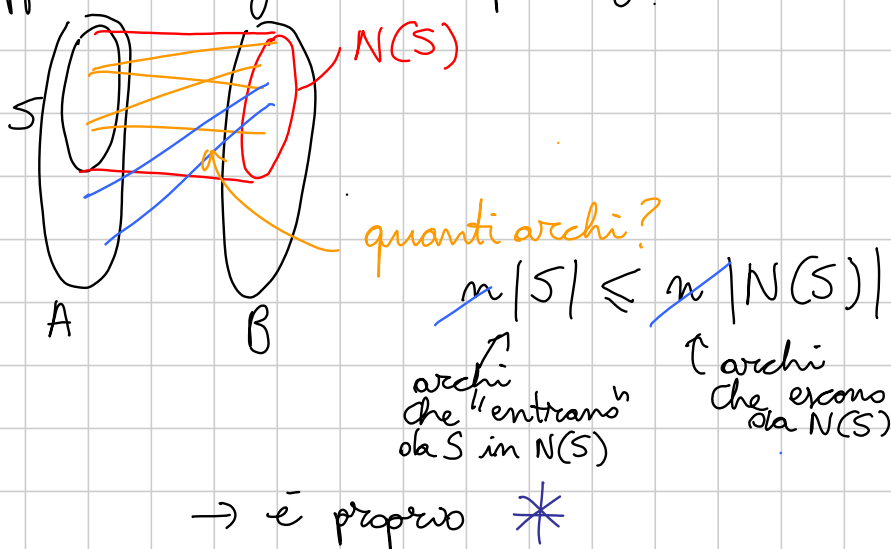 N(S)
S
quanti archi?
n|S| ≤ n|N(S)|
A
B
archi
che "entrano"
da S in N(S)
archi
che escono
da N(S)
→ è proprio *